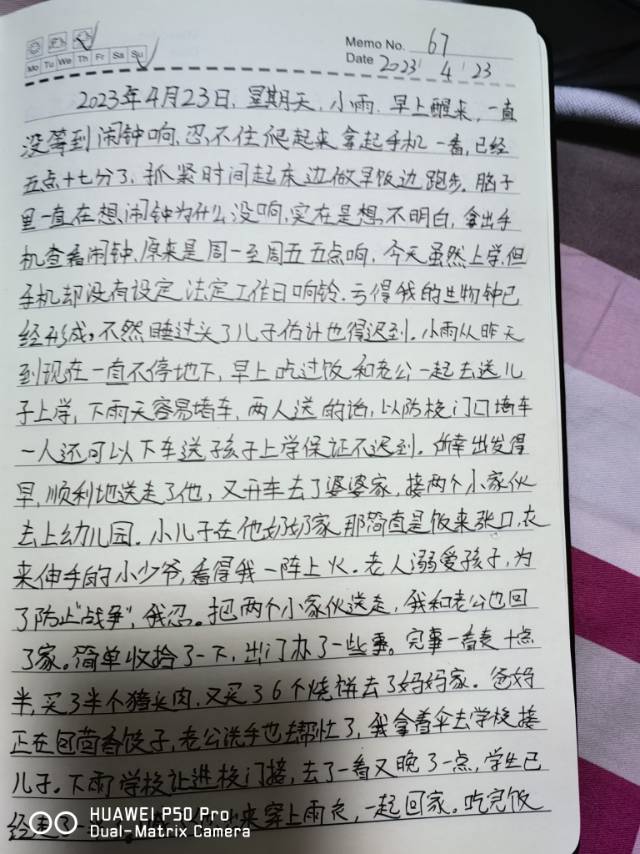 Memo No. 67
Mo Tu We Th Fr Sa Su
Date 2023 4 23
2023年4月23日,星期天,小雨.早上醒来,一直
没等到闹钟响,忍不住爬起来拿起手机一看,已经
五点十七分了,抓紧时间起床边做早饭边跑步.脑子
里一直在想,闹钟为什么没响,实在是想不明白,拿出手
机查看闹钟,原来是周一至周五五点响,今天虽然上学,但
手机却没有设定法定工作日响铃.亏得我的生物钟已
经形成,不然睡过头了儿子估计也得迟到.小雨从昨天
到现在一直不停地下,早上吃过饭和老公一起去送儿
子上学,下雨天容易堵车,两人送的话,以防校门口堵车
一人还可以下车送孩子上学保证不迟到.所幸出发得
早,顺利地送走了他,又开车去了婆婆家,接两个小家伙
去上幼儿园.小儿子在他奶奶家那简直是饭来张口,衣
来伸手的小少爷,看得我一阵上火.老人溺爱孩子,为
了防止"战争",我忍。把两个小家伙送走,我和老公也回
了家。简单收拾了一下,出门办了一些事。完事一看表十点
半,买了半个猪头肉,又买了6个烧饼去了妈妈家。爸妈
正在包茴香饺子,老公洗手也去帮忙了,我拿着伞去学校接
儿子.下雨学校让进校门接,去了一看又晚了一点,学生已
经走了 来穿上雨衣,一起回家.吃完饭
HUAWEI P50 Pro
Dual-Matrix Camera